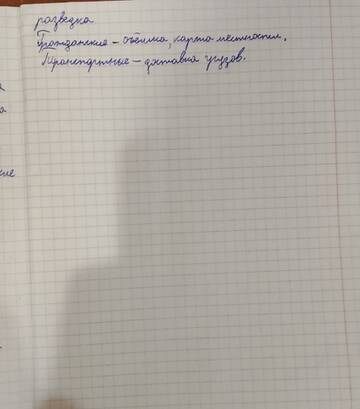 разведка
Гражданские – съёмка, карта местности.
Транспортные – доставка грузов.